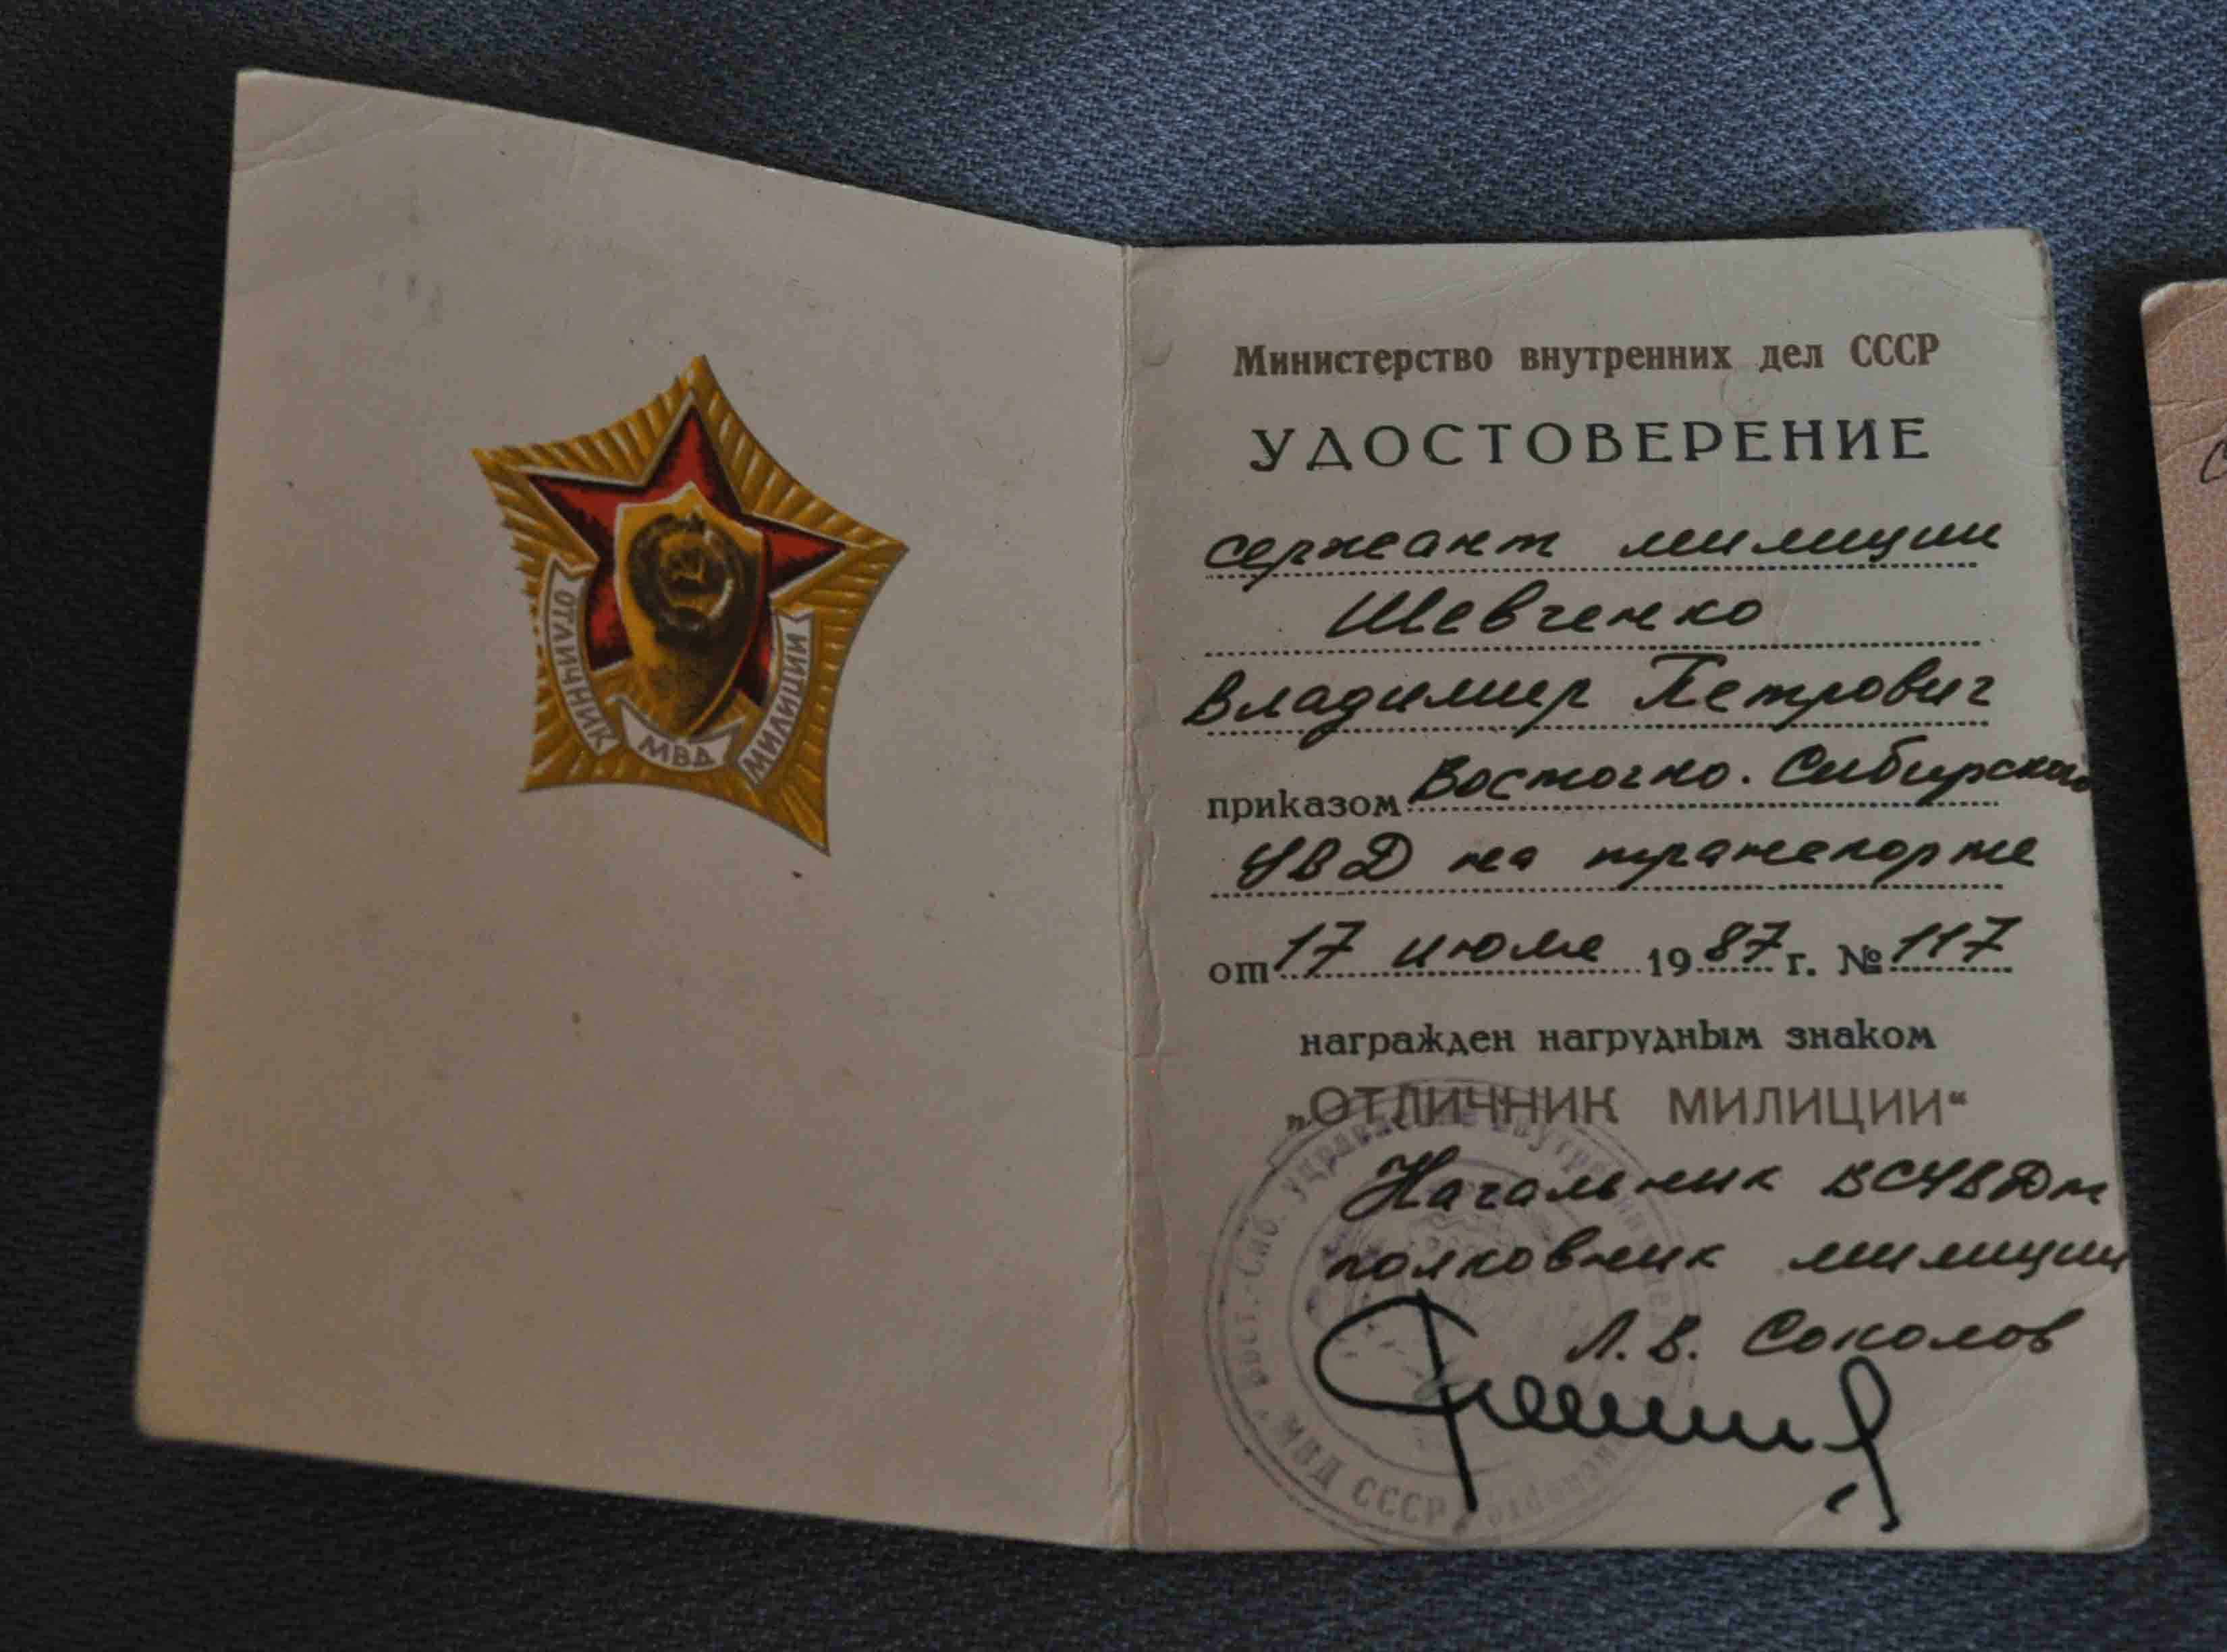 ОТЛИЧНИК
МВД
МИЛИЦИИ
Министерство внутренних дел СССР
УДОСТОВЕРЕНИЕ
сержант милиции
Шевченко
Владимир Петрович
приказом Восточно-Сибирского
УВД на транспорте
от 17 июля 1987 г. № 117
награжден нагрудным знаком
„ОТЛИЧНИК МИЛИЦИИ“
Начальник ВСУВДт
полковник милиции
Л.В. Соколов
Вост.-Сиб. управление внутренних дел МВД СССР